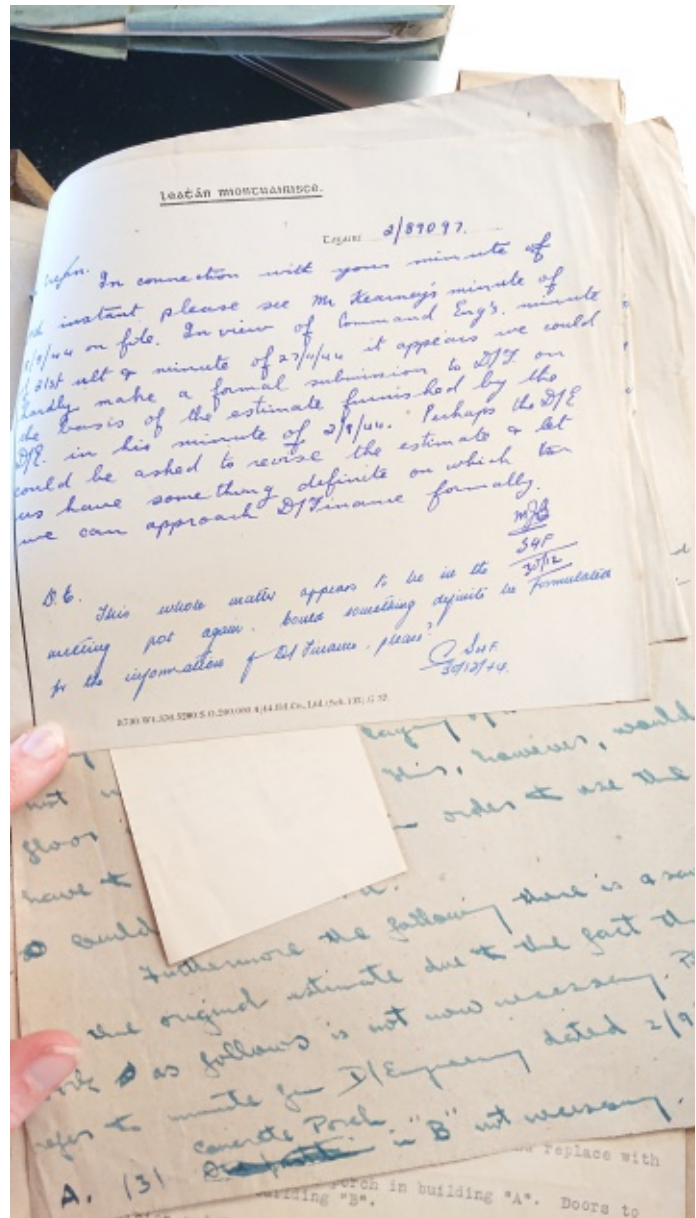 leatán miontuairisce.
2/89097.
In connection with your minute of
instant please see Mr Kearney's minute of
/9/44 on file. In view of Command Eng's. minute
of 21st ult & minute of 27/11/44 it appears we could
hardly make a formal submission to D/F on
the basis of the estimate furnished by the
D/E. in his minute of 2/9/44. Perhaps the D/E
could be asked to revise the estimate & let
us have something definite on which
we can approach D/Finance formally.
S4F
30/12
D.E.
This whole matter appears to be in the
melting pot again. Could something definite be formulated
for the information of D/Finance, please?
S4F.
30/12/44.
laying of
not this, however, would
floor order to use the
have to
could
Furthermore the following there is a
the original estimate due to the fact
as follows is not now necessary.
refers to minute from D/Engineering dated 2/9
Concrete Porch
A. (3) in "B" not necessary.
replace with
porch in building "A". Doors to
building "B".